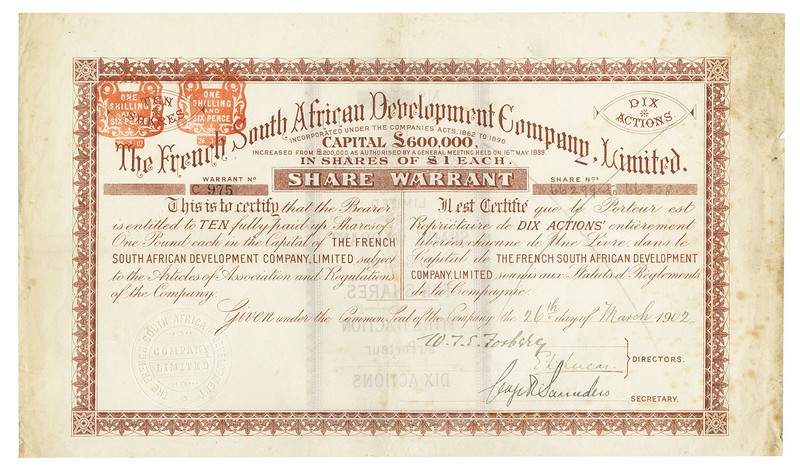 ONE SHILLING AND SIX PENCE
ONE SHILLING AND SIX PENCE
TEN SHARES
DIX ACTIONS.
The French South African Development Company, Limited.
INCORPORATED UNDER THE COMPANIES ACTS, 1862 TO 1890.
CAPITAL £600,000,
INCREASED FROM £200,000 AS AUTHORISED BY A GENERAL MEETING HELD ON 16TH MAY 1899.
IN SHARES OF £1 EACH.
WARRANT No
C 975
SHARE WARRANT
SHARE Nos
This is to certify that the Bearer
is entitled to TEN fully paid up Shares of
One Pound each in the Capital of THE FRENCH
SOUTH AFRICAN DEVELOPMENT COMPANY, LIMITED subject
to the Articles of Association and Regulations
of the Company.
Il est Certifié que le Porteur est
Propriétaire de DIX ACTIONS entièrement
libérées, chacune de Une Livre, dans le
Capital de THE FRENCH SOUTH AFRICAN DEVELOPMENT
COMPANY, LIMITED soumis aux Statuts et Règlements
de la Compagnie.
Given under the Common Seal of the Company the 26th day of March 1902
THE FRENCH SOUTH AFRICAN DEVELOPMENT
COMPANY
LIMITED
DIRECTORS.
Saunders
SECRETARY.